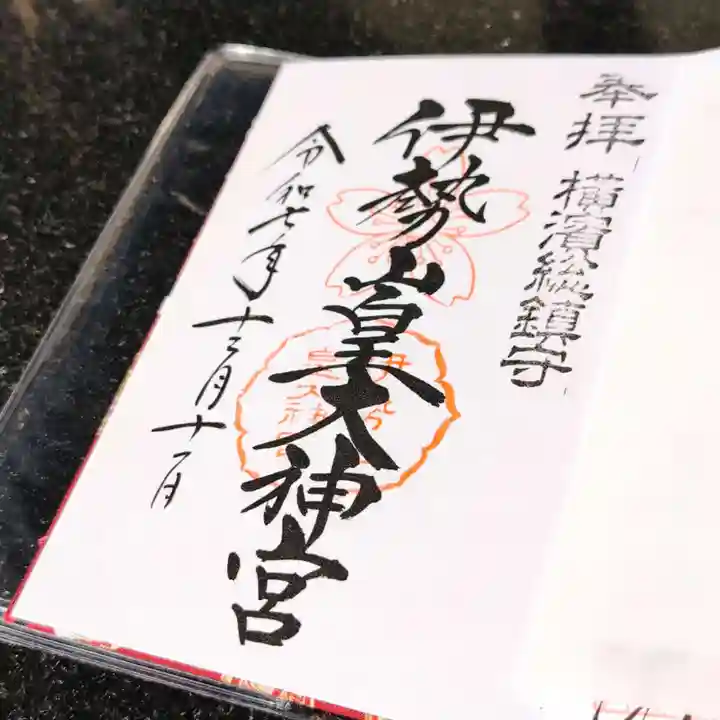 奉拝 横濱総鎮守
伊勢山皇大神宮
令和七年十二月十一日